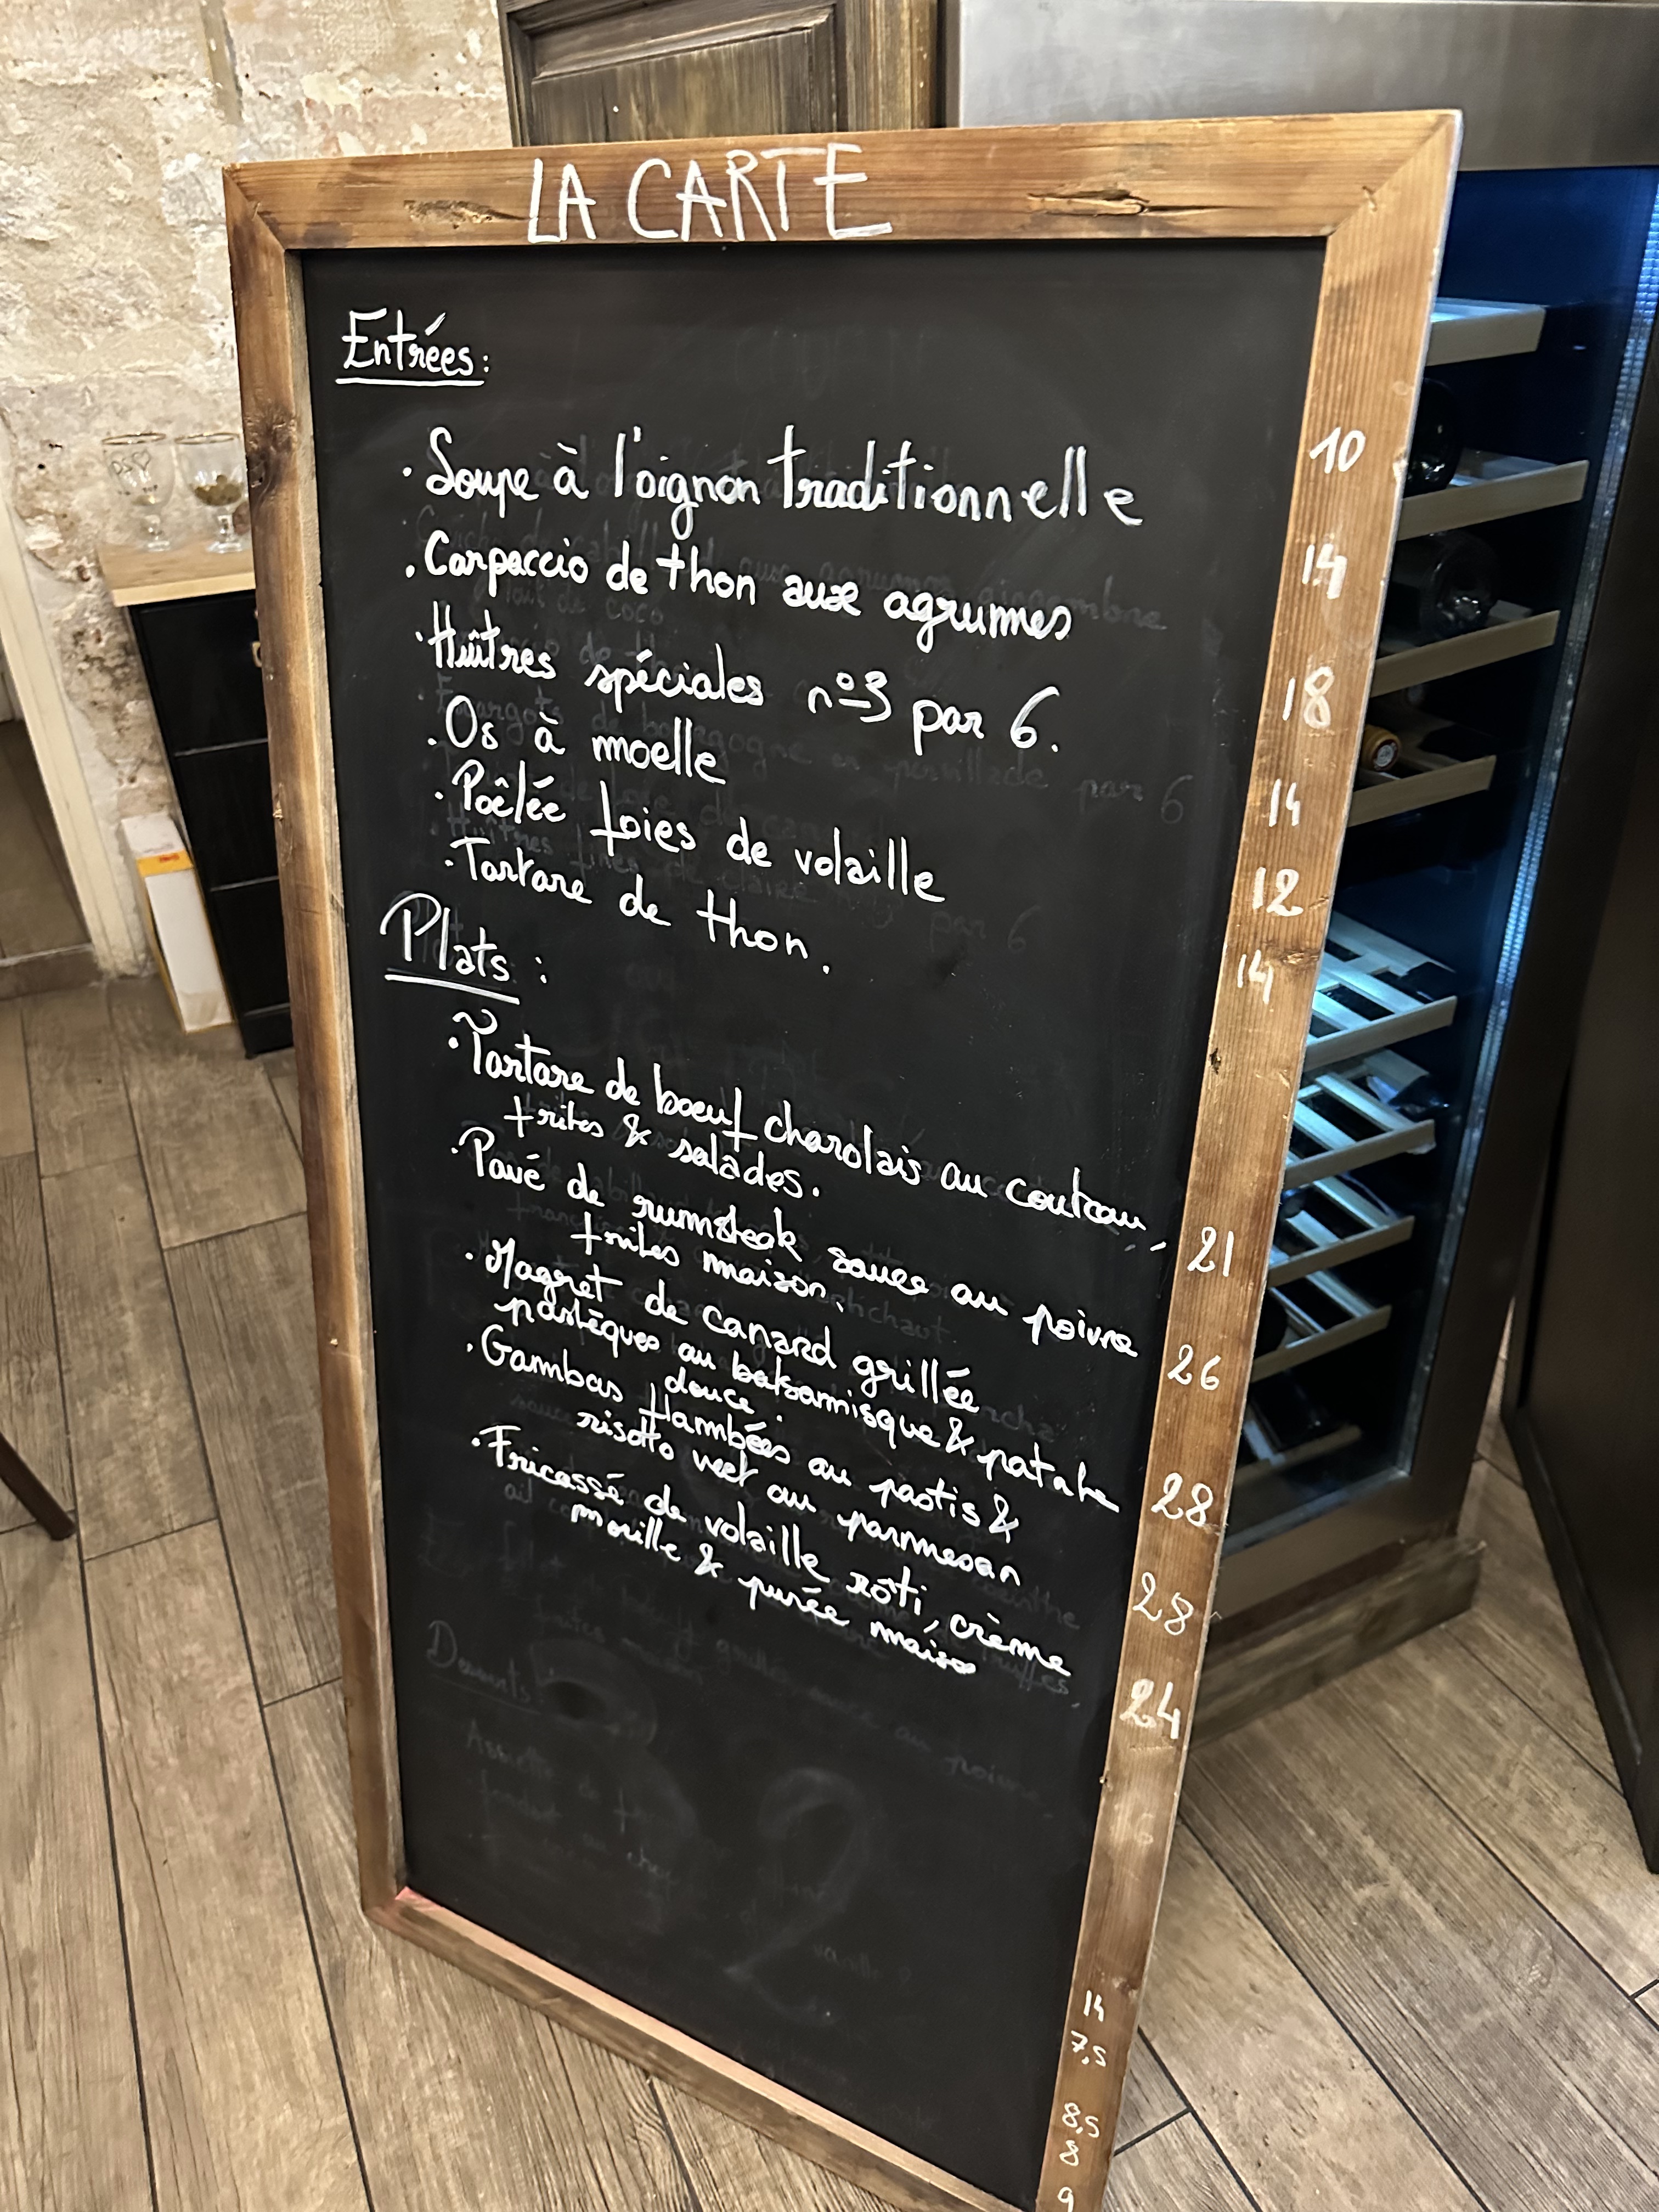 LA CARTE
Entrées:
. Soupe à l'oignon traditionnelle 10
. Carpaccio de thon aux agrumes 14
. Huîtres spéciales n°3 par 6. 18
. Os à moelle 14
. Poêlée foies de volaille 12
. Tartare de thon. 14
Plats :
. Tartare de boeuf charolais au couteau, 21
frites & salades.
. Pavé de rumsteak sauce au poivre 26
frites maison.
. Magret de canard grillée 28
pastèques au balsamisque & patate
douce.
. Gambas flambées au pastis & 28
risotto vert au parmesan
. Fricassé de volaille rôti, crème 24
morille & purée maison
Desserts
14
7,5
8,5
8
9